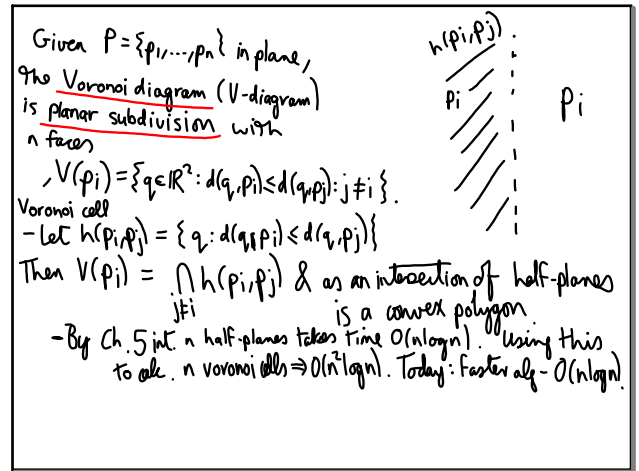 Given P = {p1,...,pn} in plane,
the Voronoi diagram (V-diagram)
is planar subdivision with
n faces
, V(pi) = {q ∈ ℝ² : d(q,pi) ≤ d(q,pj) : j ≠ i}.
Voronoi cell
- Let h(pi,pj) = {q : d(q,pi) ≤ d(q,pj)}
Then V(pi) = ⋂ h(pi,pj) & as an intersection of half-planes
j≠i
is a convex polygon
- By Ch. 5 int. n half-planes takes time O(nlogn). Using this
to calc. n voronoi cells ⇒ O(n²logn). Today: Faster alg - O(nlogn).
h(pi,pj)
pi
Pi